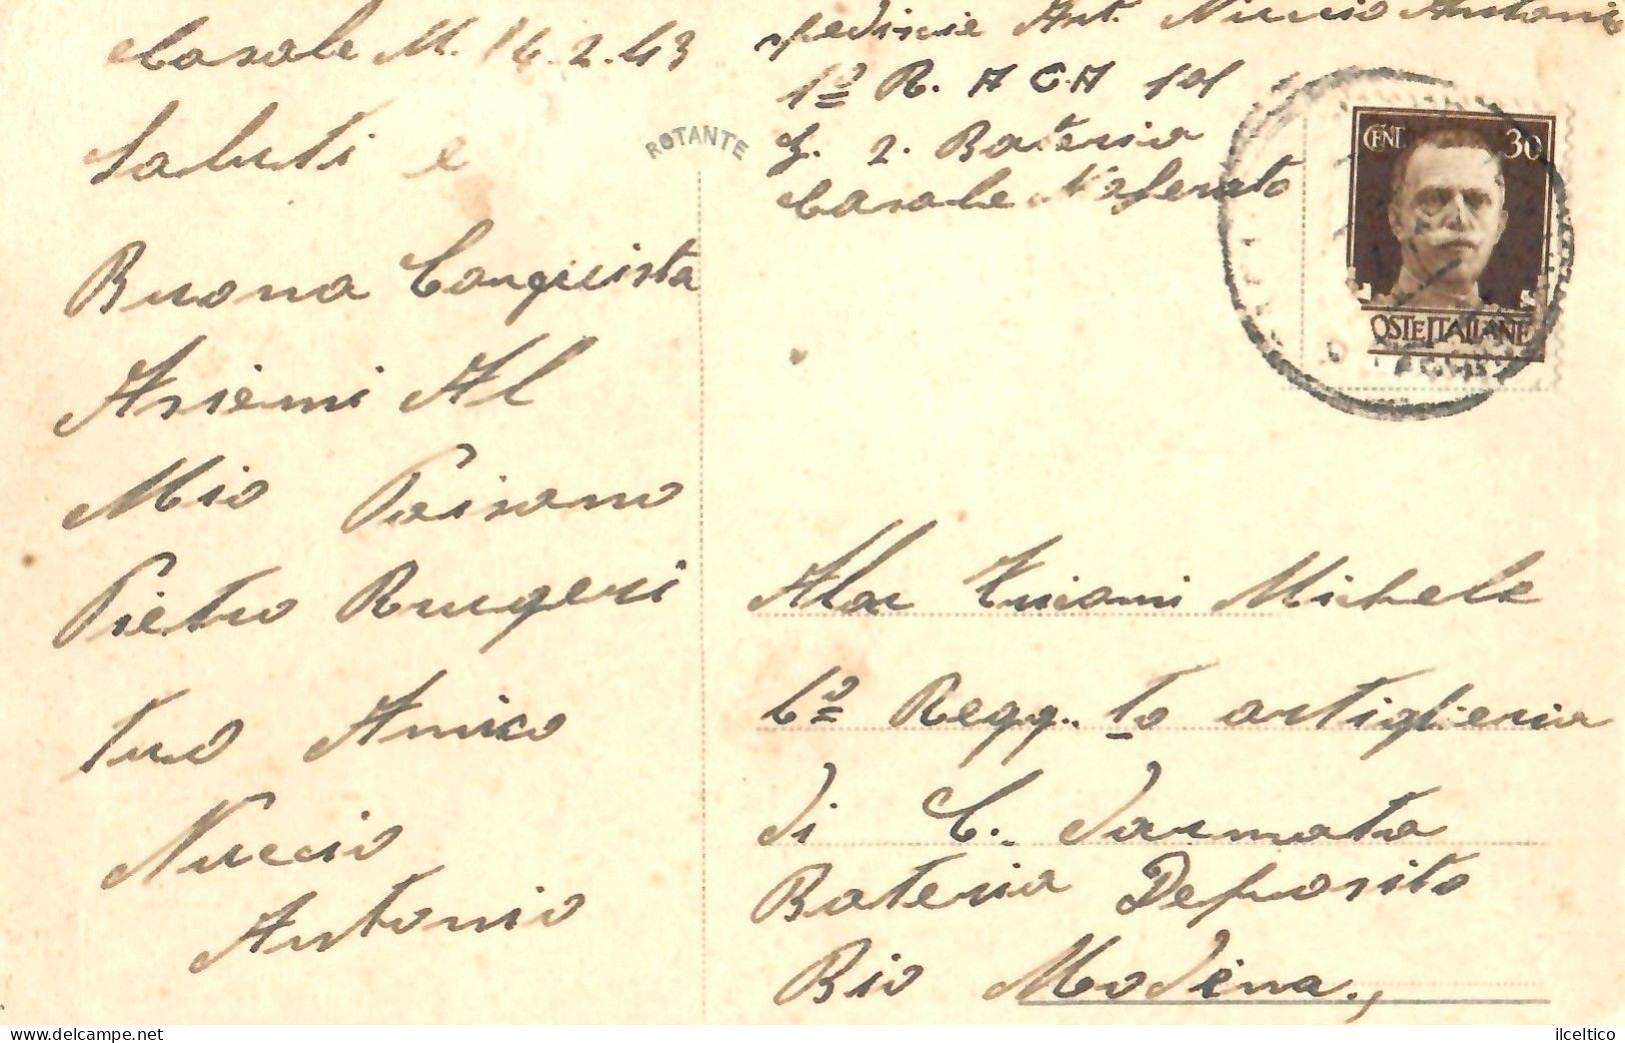 Casale M. 14.2.43
Saluti e
Buona Conquista
Asiemi Al
Mio Paisano
Pietro Rugeri
tuo Amico
Nuccio
Antonio
ROTANTE
spedisce Art. Nuccio Antonio
1º R. A C.A 101
2. Bateria
Casale Moferato
CENT. 30
POSTE ITALIANE
Michele
6º Regg. to artiglieria
di C. darmata
Bateria Deposito
Rio Modena.,
delcampe.net
ilceltico